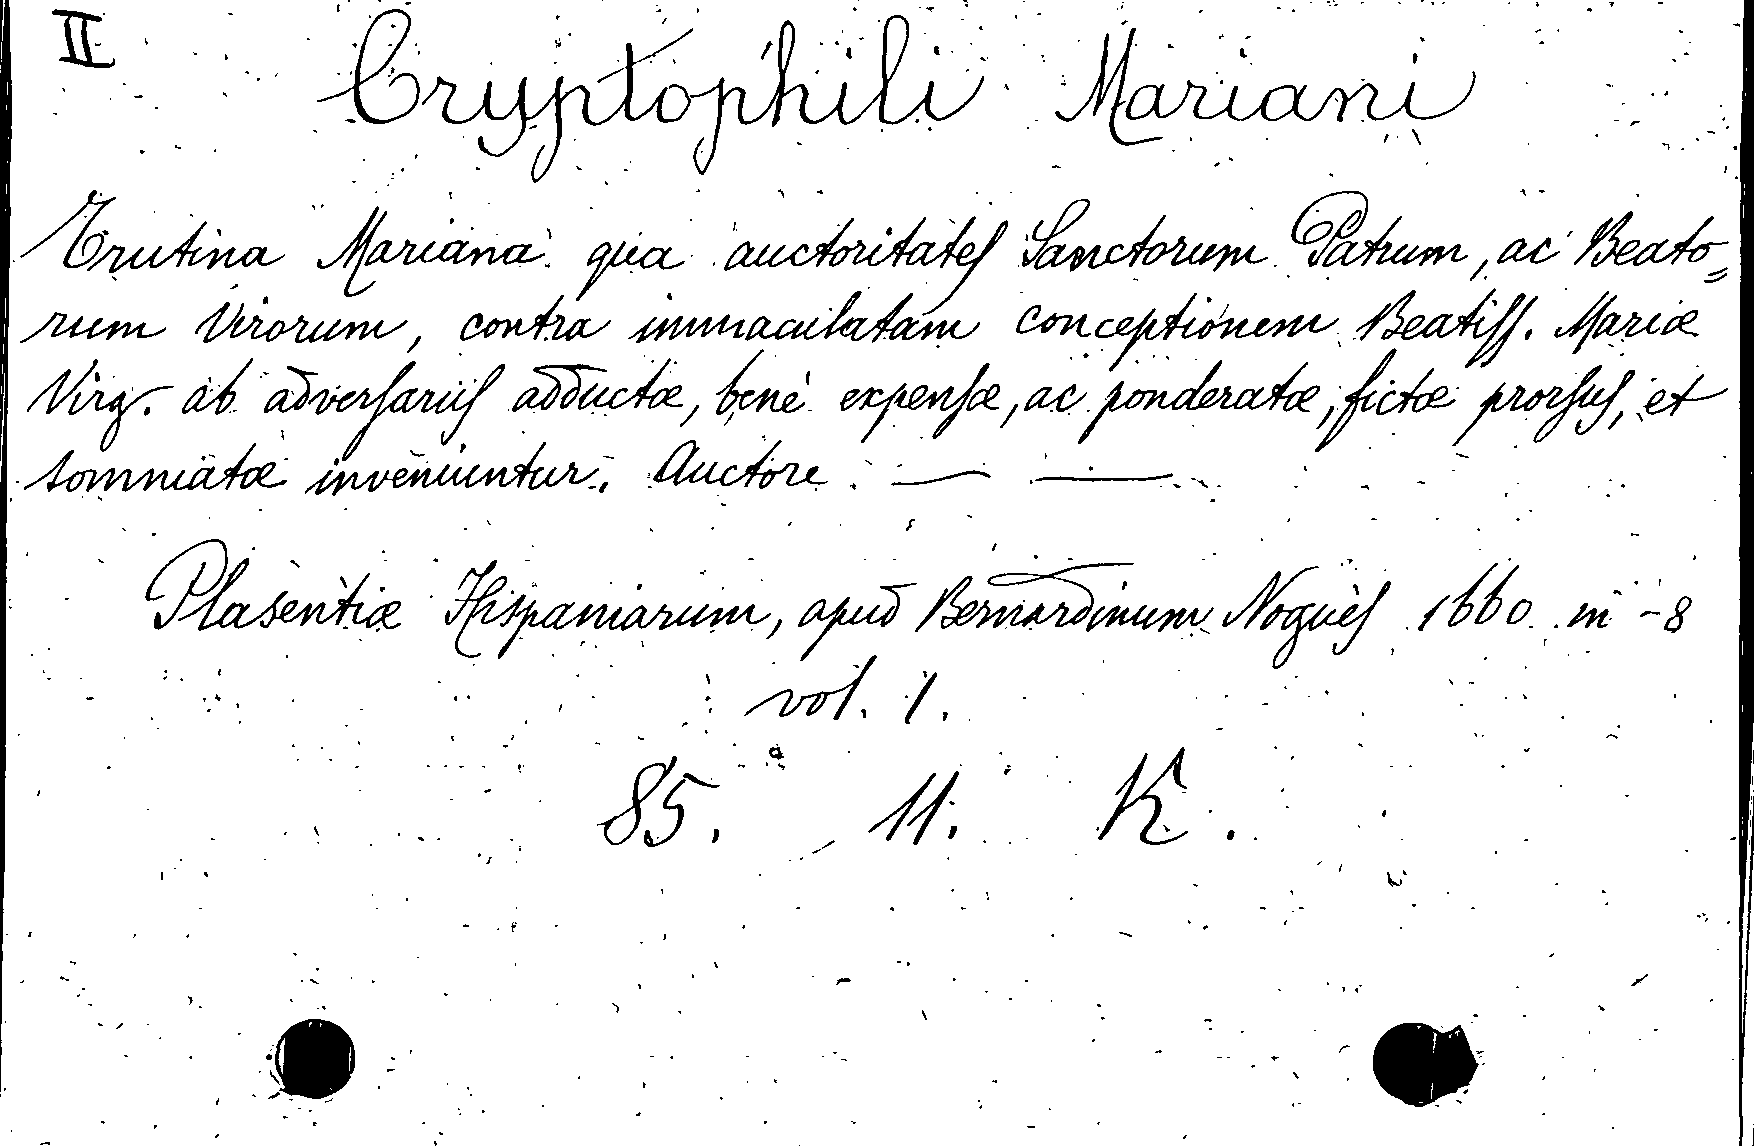 II
Cryptophili Mariani
Trutina Mariana qua auctoritates Sanctorum Patrum, ac Beato=
rum Virorum, contra immaculatam conceptionem Beatiss. Mariæ
Virg. ab adversariis adductæ, benè expensæ, ac ponderatæ, fictæ prorsus, et
somniatæ inveniuntur. Auctore — —
Plasentiæ Hispaniarum, apud Bernardinum Noguès 1660 in -8
vol. 1.
85. 11. K.